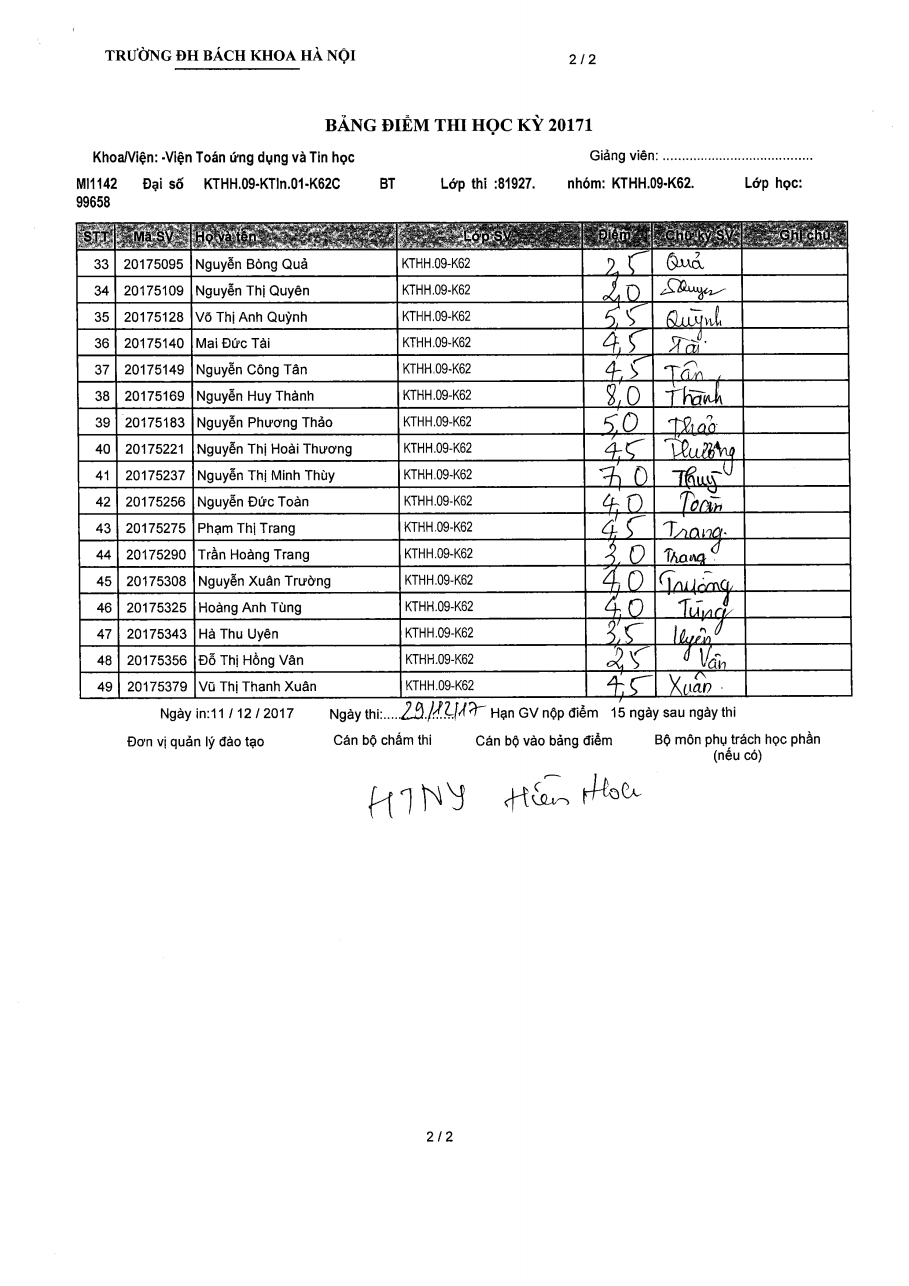 TRƯỜNG ĐH BÁCH KHOA HÀ NỘI 2 / 2
BẢNG ĐIỂM THI HỌC KỲ 20171
Khoa/Viện: -Viện Toán ứng dụng và Tin học Giảng viên: ........................................
MI1142 Đại số KTHH.09-KTIn.01-K62C BT Lớp thi :81927. nhóm: KTHH.09-K62. Lớp học:
99658
STT Mã SV Họ và tên Lớp SV Điểm Chữ ký SV Ghi chú
33 20175095 Nguyễn Bòng Quả KTHH.09-K62 2,5 Quả
34 20175109 Nguyễn Thị Quyên KTHH.09-K62 2,0 Quyên
35 20175128 Võ Thị Anh Quỳnh KTHH.09-K62 5,5 Quỳnh
36 20175140 Mai Đức Tài KTHH.09-K62 4,5 Tài
37 20175149 Nguyễn Công Tân KTHH.09-K62 4,5 Tân
38 20175169 Nguyễn Huy Thành KTHH.09-K62 8,0 Thành
39 20175183 Nguyễn Phương Thảo KTHH.09-K62 5,0 Thảo
40 20175221 Nguyễn Thị Hoài Thương KTHH.09-K62 4,5 Thương
41 20175237 Nguyễn Thị Minh Thùy KTHH.09-K62 7,0 Thuỳ
42 20175256 Nguyễn Đức Toàn KTHH.09-K62 4,0 Toàn
43 20175275 Phạm Thị Trang KTHH.09-K62 4,5 Trang
44 20175290 Trần Hoàng Trang KTHH.09-K62 3,0 Trang
45 20175308 Nguyễn Xuân Trường KTHH.09-K62 4,0 Trường
46 20175325 Hoàng Anh Tùng KTHH.09-K62 4,0 Tùng
47 20175343 Hà Thu Uyên KTHH.09-K62 3,5 Uyên
48 20175356 Đỗ Thị Hồng Vân KTHH.09-K62 2,5 Vân
49 20175379 Vũ Thị Thanh Xuân KTHH.09-K62 4,5 Xuân
Ngày in:11 / 12 / 2017 Ngày thi:....29/12/17 Hạn GV nộp điểm 15 ngày sau ngày thi
Đơn vị quản lý đào tạo Cán bộ chấm thi Cán bộ vào bảng điểm Bộ môn phụ trách học phần
(nếu có)
HTNY Hiền Hoa
2 / 2